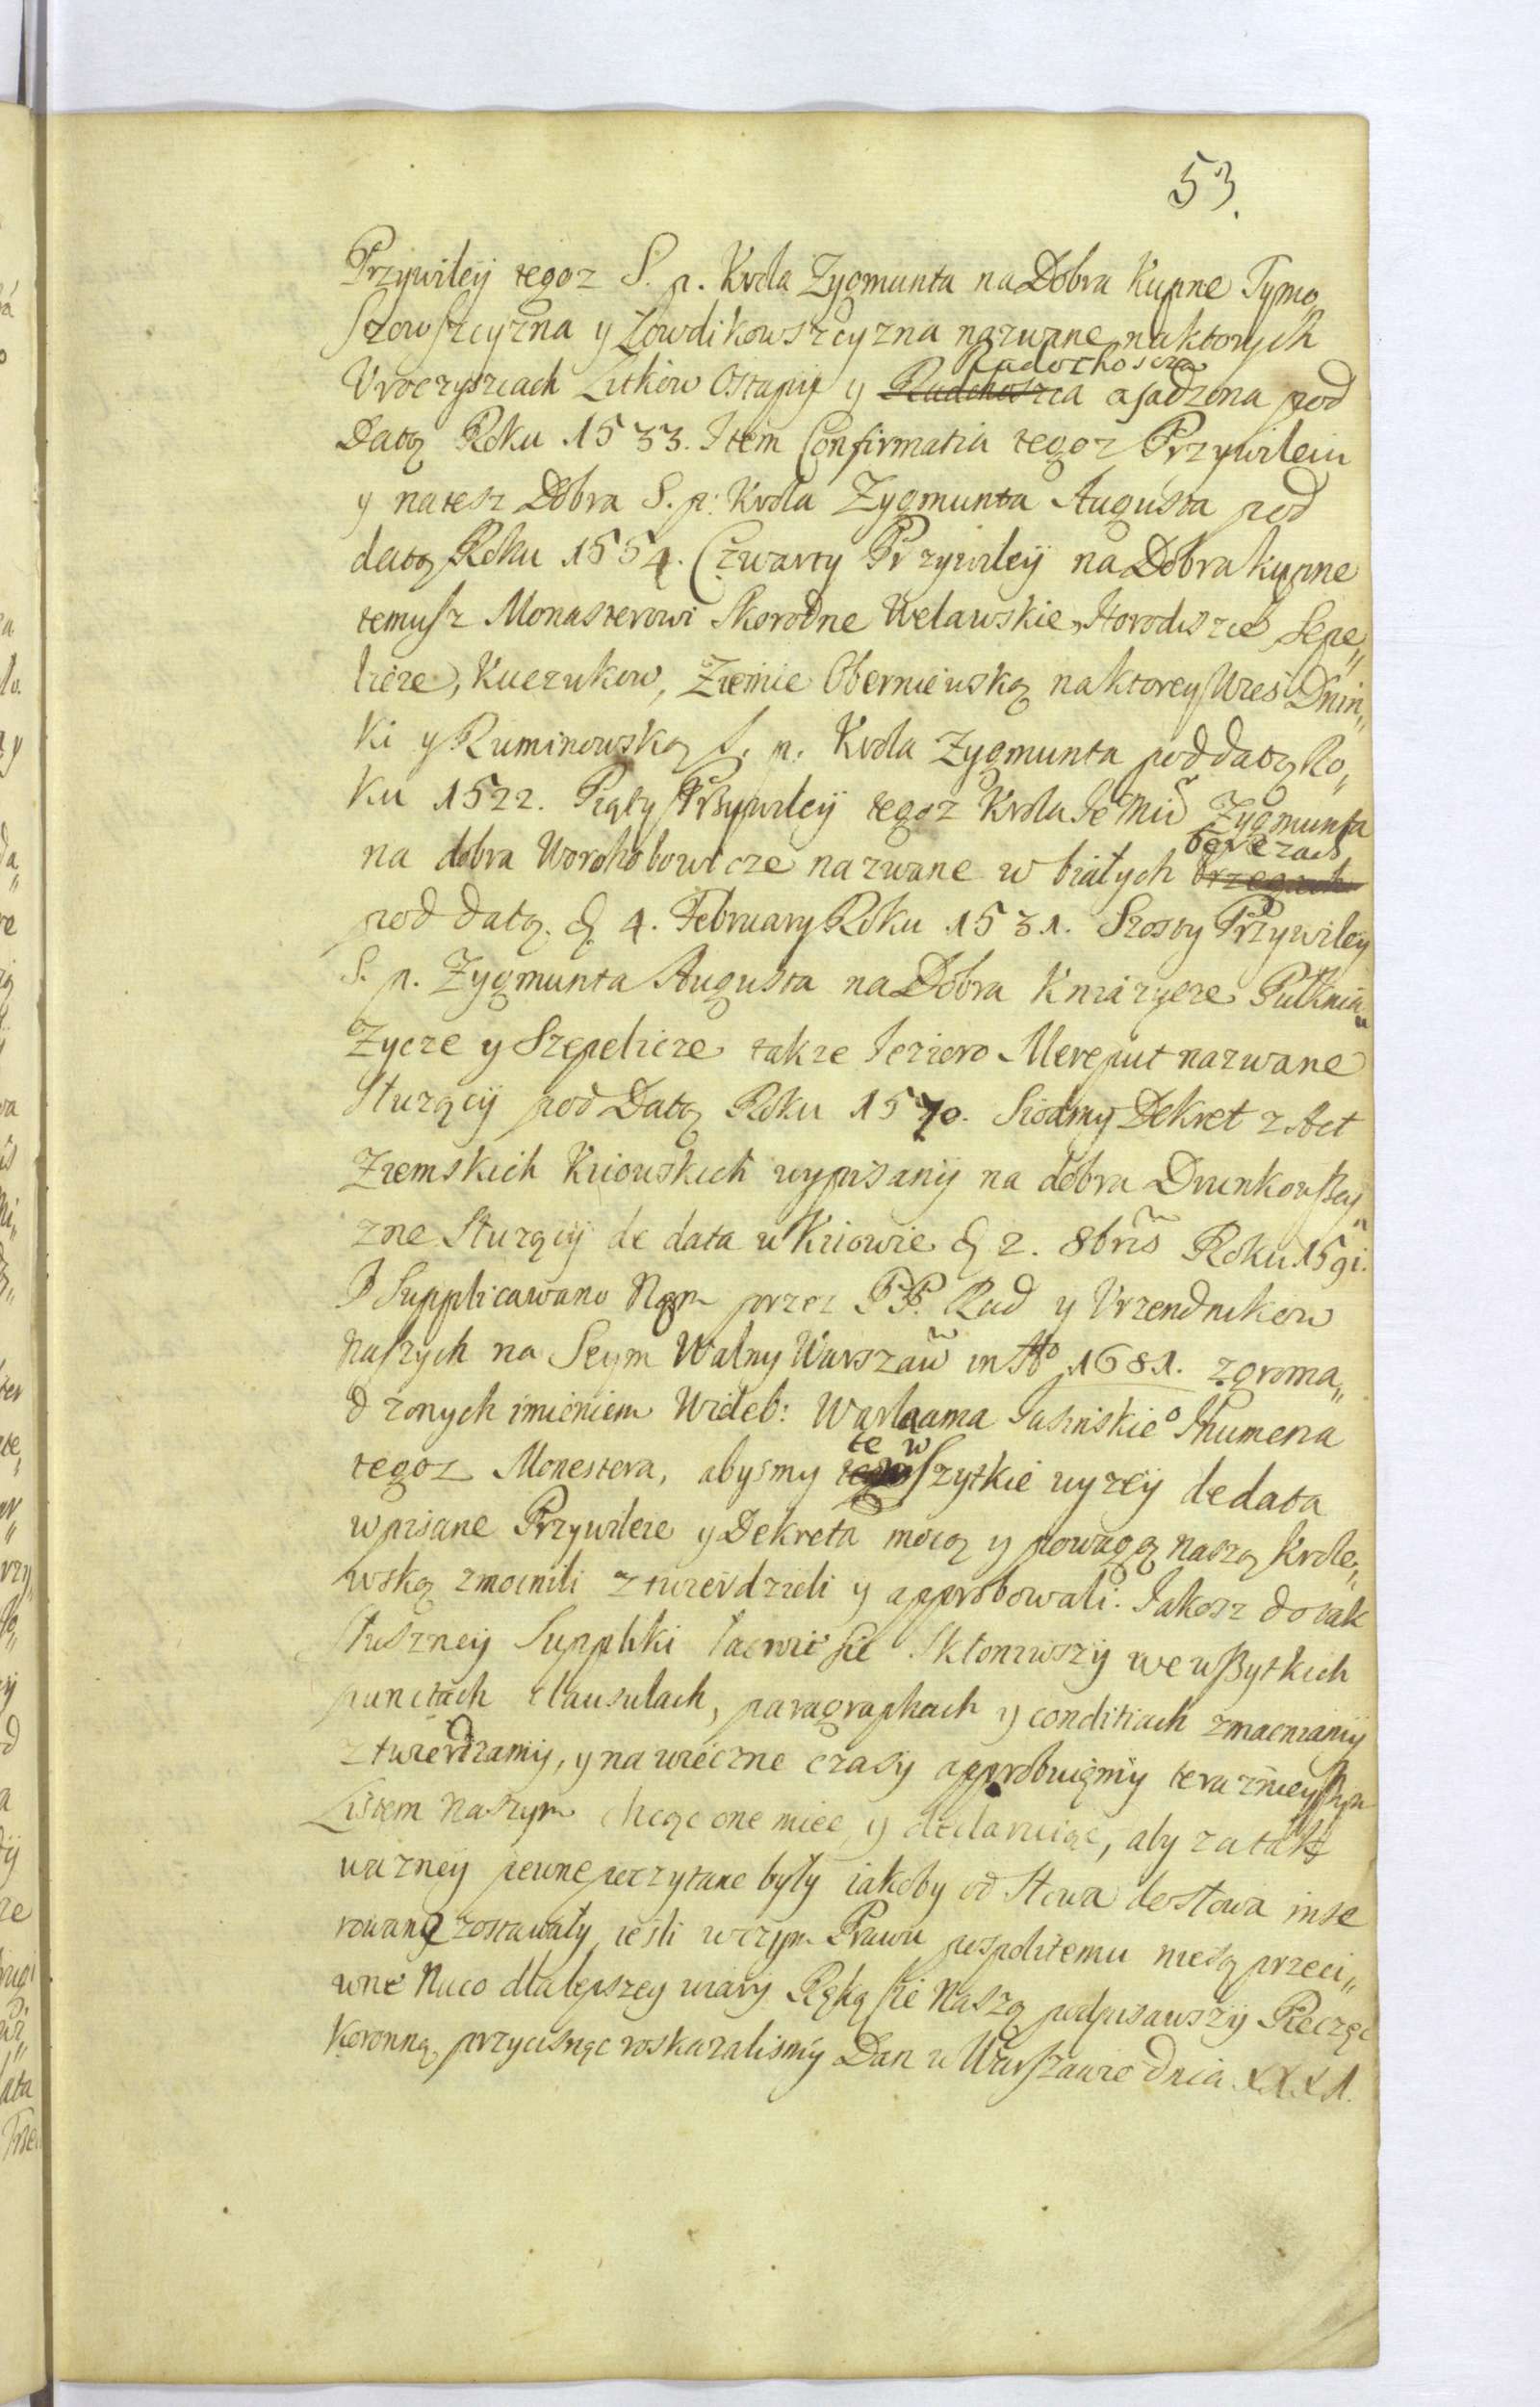 53.
Przywiley tegoz S. p. Krola Zygmunta na Dobra Kupne Tymo„
szowszczyzna y Zowdikowszczyzna nazwane na ktorych
Radochoszcza
Vroczyszczach Litkow Ostapy y Radchoszcza osadzona pod
Datą Roku 1533. Item Confirmatia tegoz Przywileiu
y natesz Dobra S. p: Krola Zygmunta Augusta pod
datą Roku 1554. Czwarty Przywiley na Dobra kupne
temusz Monasterowi Skorodne Welawskie, Horodiszcze Sepe„
licze, Kuczukow, Ziemie Oberniewską na ktorey Wies Dnin„
ki y Ruminowską S. p. Krola Zygmunta pod datą Ro„
ku 1522. Piąty Przywiley tegoz Krola Je Mci Zygmunta
berezach
na dobra Worohobowicze nazwane w białych brzegach
pod datą. d. 4. February Roku 1531. Szosty Przywiley
S. p. Zygmunta Augusta na Dobra Kniazycze Pułknia„
Zycze y Szepelicze takze Jezioro Mereput nazwane
Służący pod Datą Roku 1570. Siodmy Dekret z Act
Ziemskich Kiiowskich wypisany na dobra Drunkowszczy„
zne Służący de data w Kiiowie d. 2. 8bris Roku 1591.
I Supplicawano Nam przez PP. Rad y Vrzendnikow
naszych na Seym Walny Warszaw in Ao 1681. zgroma„
dzonych imieniem Wieleb: Warlaama Jasinskieo Ihumena
te w
tegoz Monestera, abysmy szytkie wyzey de data
wpisane Przywileie y Dekreta mocą y powagą naszą Krole„
wską zmocnili ztwierdzieli y approbowali. Jakosz do tak
słuszney Suppliki łacwie sie skłoniwszy we wszytkich
punctach clausulach, paragraphach y conditiach zmacniamy
ztwierdzamy, y na wieczne czasy approbuięmy terazniey szym
Listem naszym chcąc one miec y declaruiąc, aby za tak
wazney pewne poczytane były iakoby od słowa do słowa inse
rowane zostawały, iesli w czym Prawu pospolitemu niesą przeci„
wne Naco dla lepszey wiary Ręką sie Naszą podpisawszy Pieczęc
Koronną przycisnąc roskazalismy Dan w Warszawie dnia XXXI.